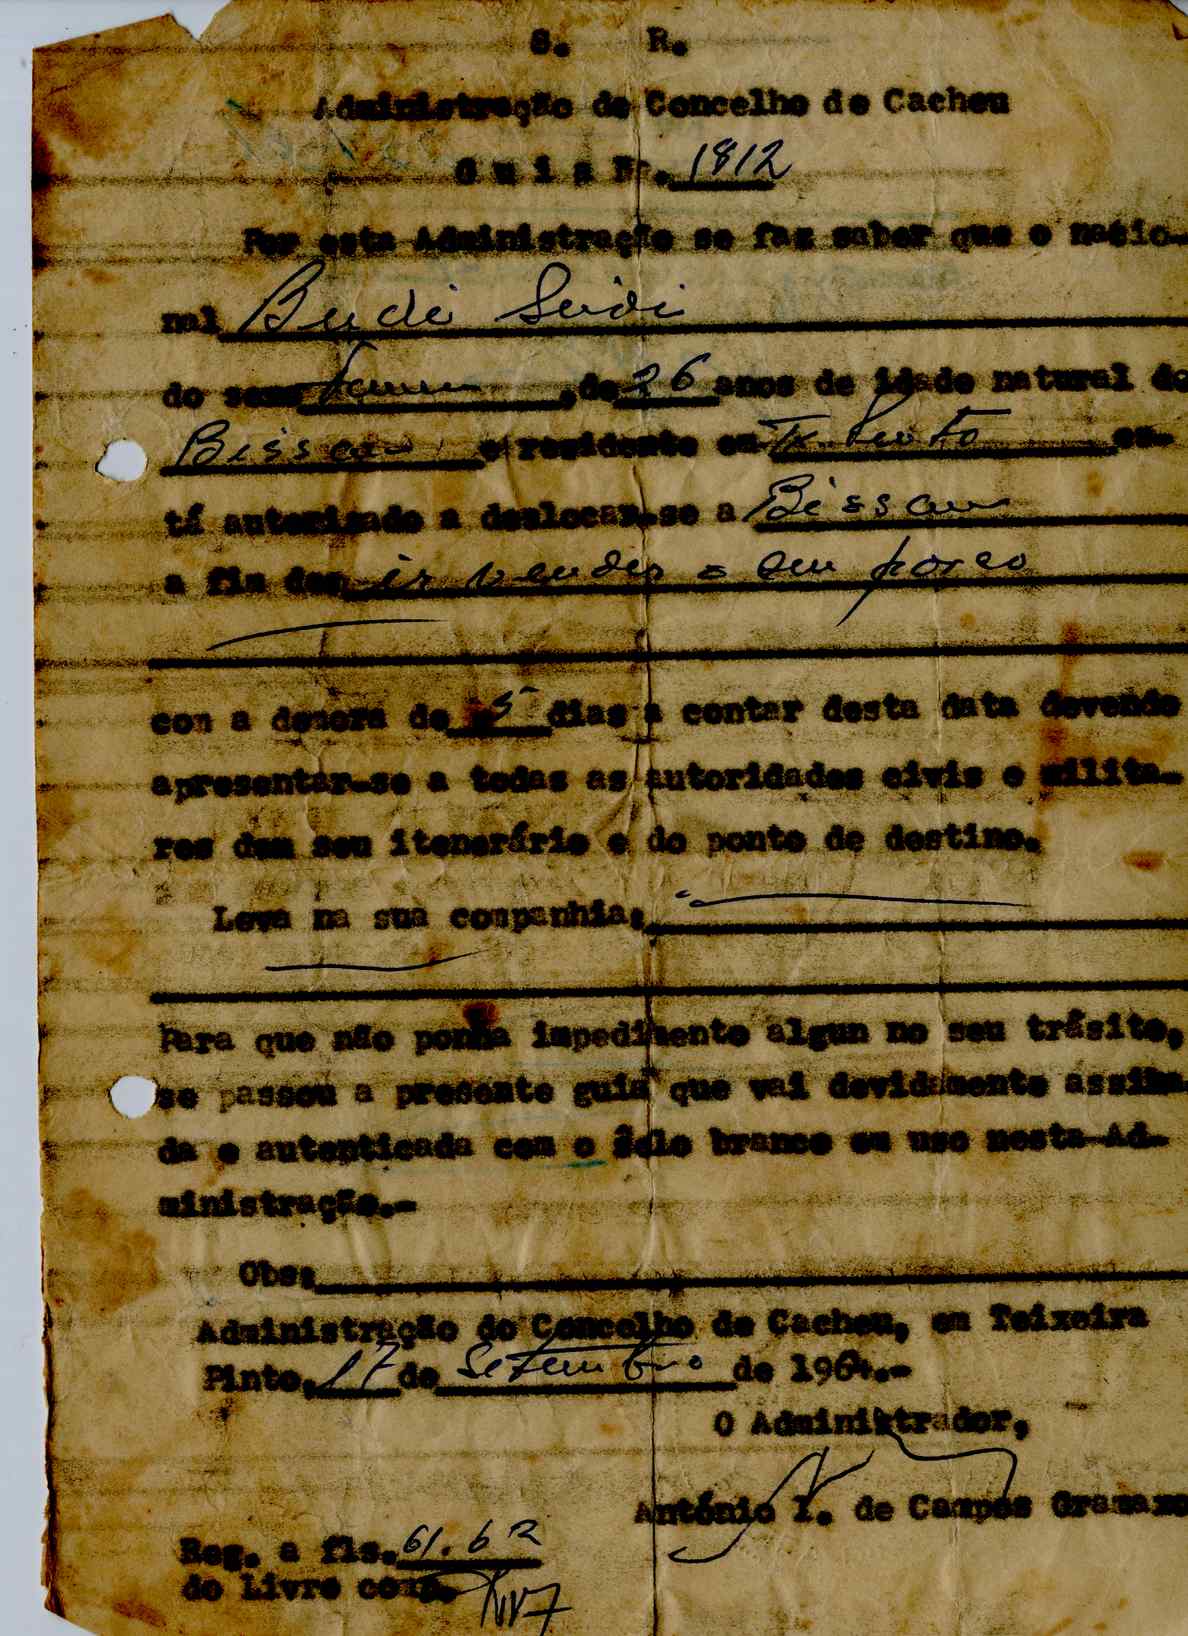 S. R.
Administração do Concelho de Cacheu
Guia Nº. 1812
Por esta Administração se faz saber que o nacio-
nal
do sexo , de 26 anos de idade natural de
Bissau e residente em Tx. Pinto es-
tá autorizado a deslocar-se a Bissau
a fim de: ir vender o seu porco
com a demora de 5 dias a contar desta data devendo
apresentar-se a todas as autoridades civis e milita-
res dem seu itenerário e do ponto de destino.
Leva na sua companhia:
Para que não ponha impedimento algun no seu trásito,
se passou a presente guia que vai devidamente assina
da e autenticada com o sêlo branco em uso nesta Ad-
ministração.-
Obs:
Administração do Concelho de Cacheu, em Teixeira
Pinto, 17 de Setembro de 1964.-
O Administrador,
António I. de Campos Gramaxo
Reg. a fls. 61.62
do Livro comp.